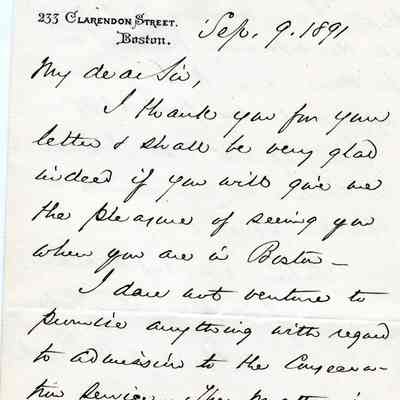 233 CLARENDON STREET.
Boston.
Sep. 9. 1891
My dear Sir,
I thank you for your
letter & shall be very glad
indeed if you will give me
the pleasure of seeing you
when you are in Boston –
I dare not venture to
promise anything with regard
to admission to the Consecra-
tion service. The matter is